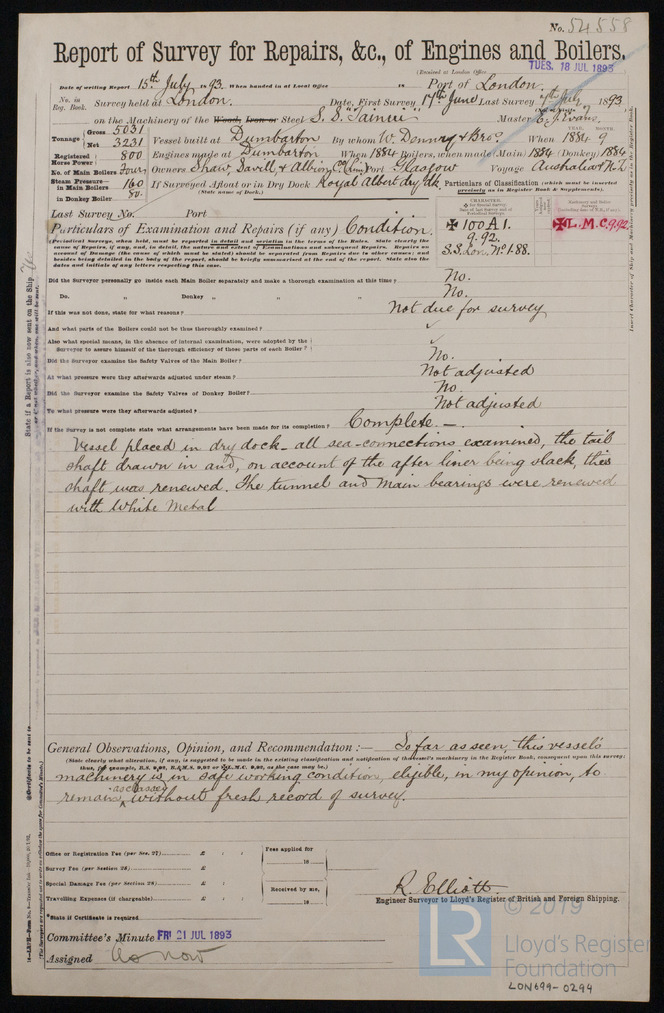 No. 54558
Report of Survey for Repairs, &c., of Engines and Boilers.
(Received at London Office TUES. 18 JUL 1893
Date of writing Report 15th July 1893. When handed in at Local Office 18 Port of London.
No. in Reg. Book. Survey held at London. Date, First Survey 17th June Last Survey 7th July 1893
on the Machinery of the Wood, Iron or Steel S.S. "Tainui" Master E. J. Evans.
Tonnage Gross 5031
Net 3231 Vessel built at Dumbarton By whom W. Denny & Bros. When 1884 9
YEAR. MONTH.
Registered Horse Power 800 Engines made at Dumbarton When 1884 Boilers, when made (Main) 1884 (Donkey) 1884
No. of Main Boilers Four Owners Shaw, Savill, & Albion Co. Port Glasgow Voyage Australia & N.Z.
Steam Pressure in Main Boilers 160 If Surveyed Afloat or in Dry Dock Royal Albert dry dk.
(State name of Dock.)
in Donkey Boiler 80.
Particulars of Classification (which must be inserted precisely as in Register Book & Supplements).
Last Survey No. Port
Particulars of Examination and Repairs (if any) Condition.
✠ 100A1.
9.92.
S.S. Lon. No. 1-88.
✠ L.M.C. 9.92
(Periodical Surveys, when held, must be reported in detail and seriatim in the terms of the Rules. State clearly the
cause of Repairs, if any, and, in detail, the nature and extent of Examinations and subsequent Repairs. Repairs on
account of Damage (the cause of which must be stated) should be separated from Repairs due to other causes; and
besides being detailed in the body of the report, should be briefly summarised at the end of the report. State also the
dates and initials of any letters respecting this case.
Did the Surveyor personally go inside each Main Boiler separately and make a thorough examination at this time? No.
Do. „ Donkey „ „ „ No.
If this was not done, state for what reasons? Not due for survey
And what parts of the Boilers could not be thus thoroughly examined? ✓
Also what special means, in the absence of internal examination, were adopted by the
Surveyor to assure himself of the thorough efficiency of those parts of each Boiler? ✓
Did the Surveyor examine the Safety Valves of the Main Boiler? No.
At what pressure were they afterwards adjusted under steam? Not adjusted
Did the Surveyor examine the Safety Valves of Donkey Boiler? No.
To what pressure were they afterwards adjusted? Not adjusted
If the Survey is not complete state what arrangements have been made for its completion? Complete.
Vessel placed in dry dock - all sea-connections examined, the tail
shaft drawn in and, on account of the after liner being slack, this
shaft was renewed. The tunnel and main bearings were renewed
with White Metal
General Observations, Opinion, and Recommendation:— So far as seen, this vessel's
(State clearly what alteration, if any, is suggested to be made in the existing classification and notification of the vessel's machinery in the Register Book, consequent upon this survey;
thus, for example, B.S. 9,92, B.&M.S. 9,92 or L.M.C. 9,92, as the case may be.)
machinery is in safe working condition, eligible, in my opinion, to
remain as classed without fresh record of survey.
Office or Registration Fee (per Sec. 27) £ : :
Survey Fee (per Section 28) £ : :
Special Damage Fee (per Section 28) £ : :
Travelling Expenses (if chargeable) £ : :
Fees applied for
18
Received by me,
18
*State if Certificate is required
R. Elliott.
Engineer Surveyor to Lloyd's Register of British and Foreign Shipping.
Committee's Minute FRI 21 JUL 1893
Assigned As now
© 2019
LR
Lloyd's Register
Foundation
LON699-0294
State if a Report is also now sent on the Ship
Insert Character of Ship and Machinery precisely as in the Register Book.